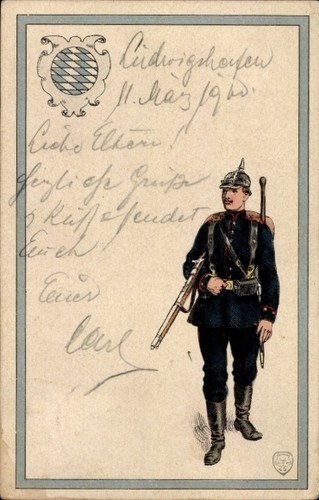 Ludwigshafen
11. März 1900.
Liebe Eltern!
herzliche Grüße
u Küsse sendet
Euch
Euer
Carl